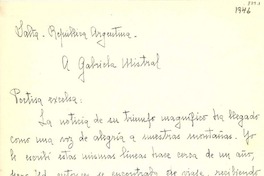 1946
Salta. República Argentina.
A Gabriela Mistral
Poetisa excelsa:
La noticia de su triunfo magnífico ha llegado
como una voz de alegría a nuestras montañas. Yo
le escribí estas mismas líneas hace cerca de un año,
pero Ud. entonces se encontraba de viaje, recibiendo